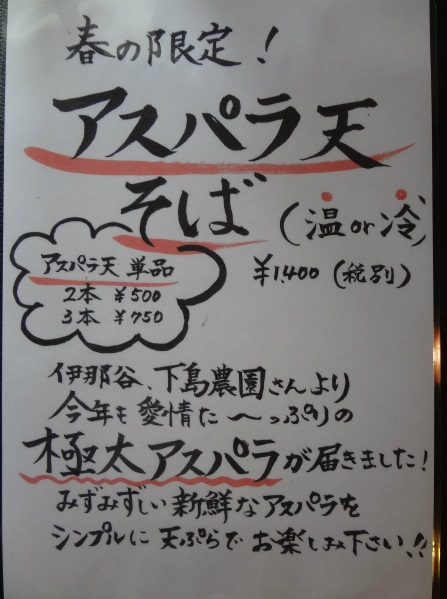 春の限定！
アスパラ天
そば
(温or冷)
¥1,400 (税別)
アスパラ天 単品
2本 ¥500
3本 ¥750
伊那谷、下島農園さんより
今年も愛情た〜っぷりの
極太アスパラが届きました！
みずみずしい新鮮なアスパラを
シンプルに天ぷらでお楽しみ下さい!!